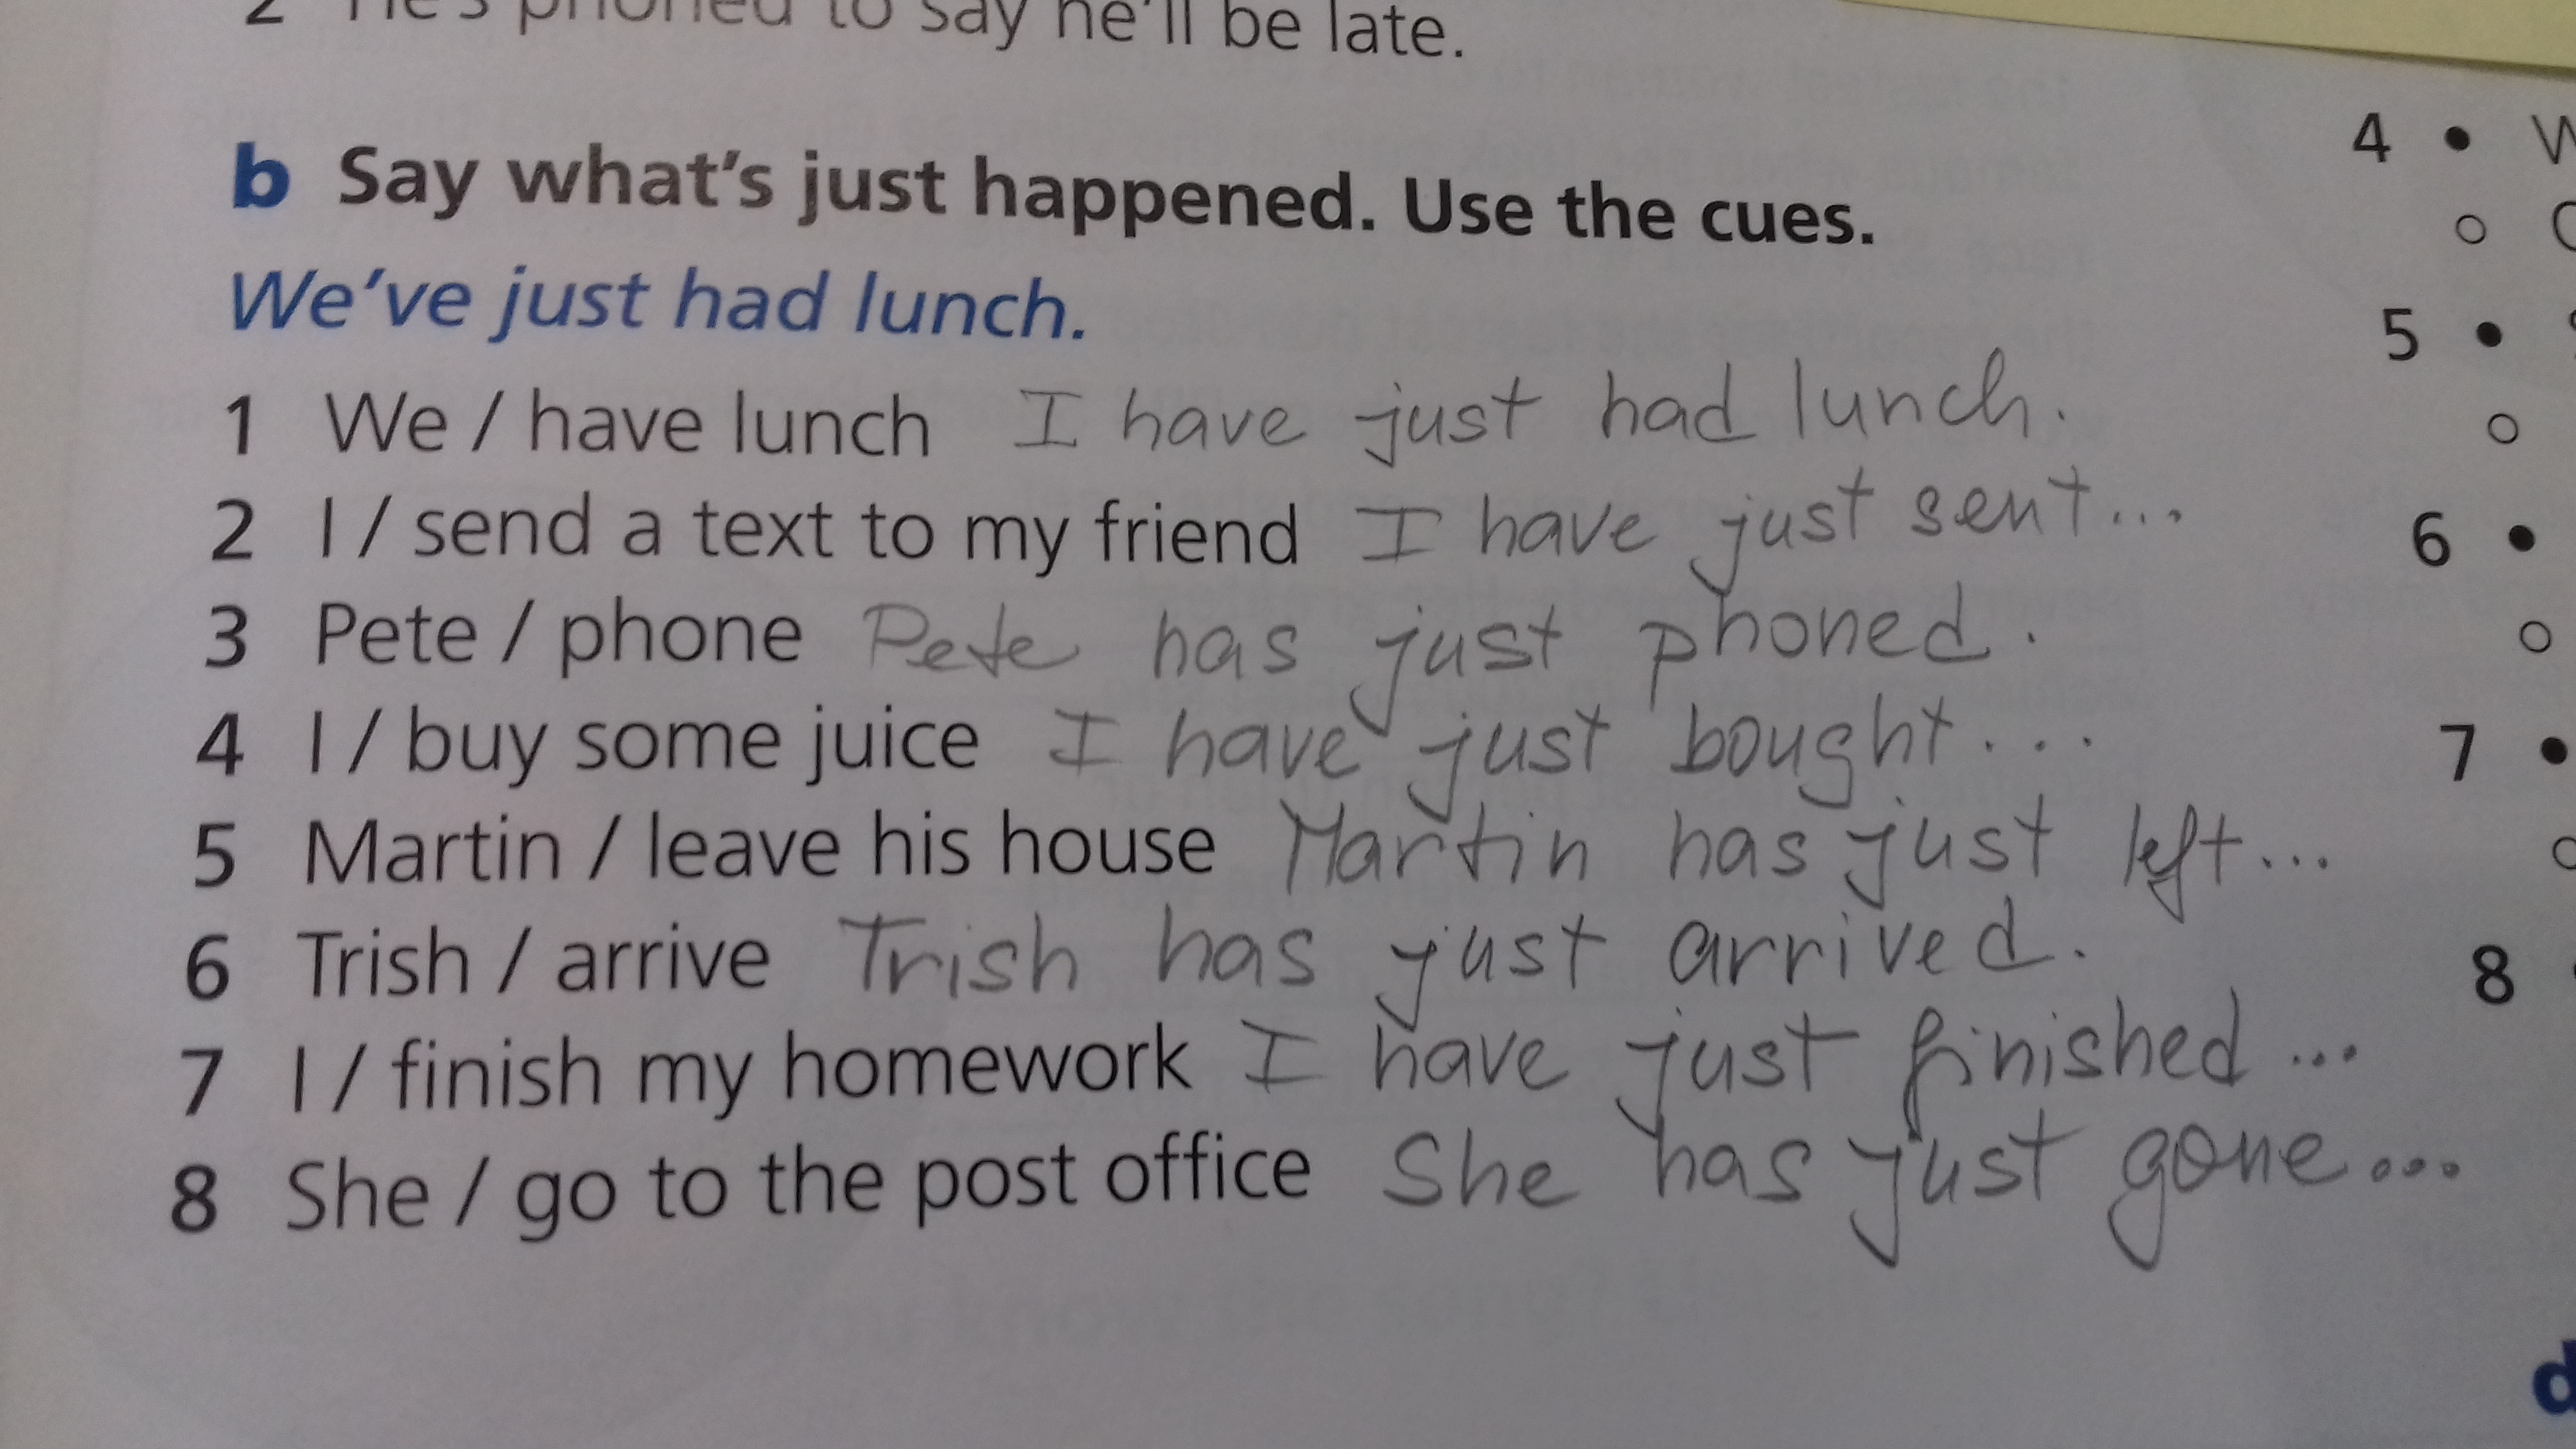 2 He's phoned to say he'll be late.
b Say what's just happened. Use the cues.
We've just had lunch.
1 We / have lunch I have just had lunch.
2 I / send a text to my friend I have just sent...
3 Pete / phone Pete has just phoned.
4 I / buy some juice I have just bought...
5 Martin / leave his house Martin has just left...
6 Trish / arrive Trish has just arrived.
7 I / finish my homework I have just finished...
8 She / go to the post office She has just gone...
4 •
5 •
6 •
7 •
8
d